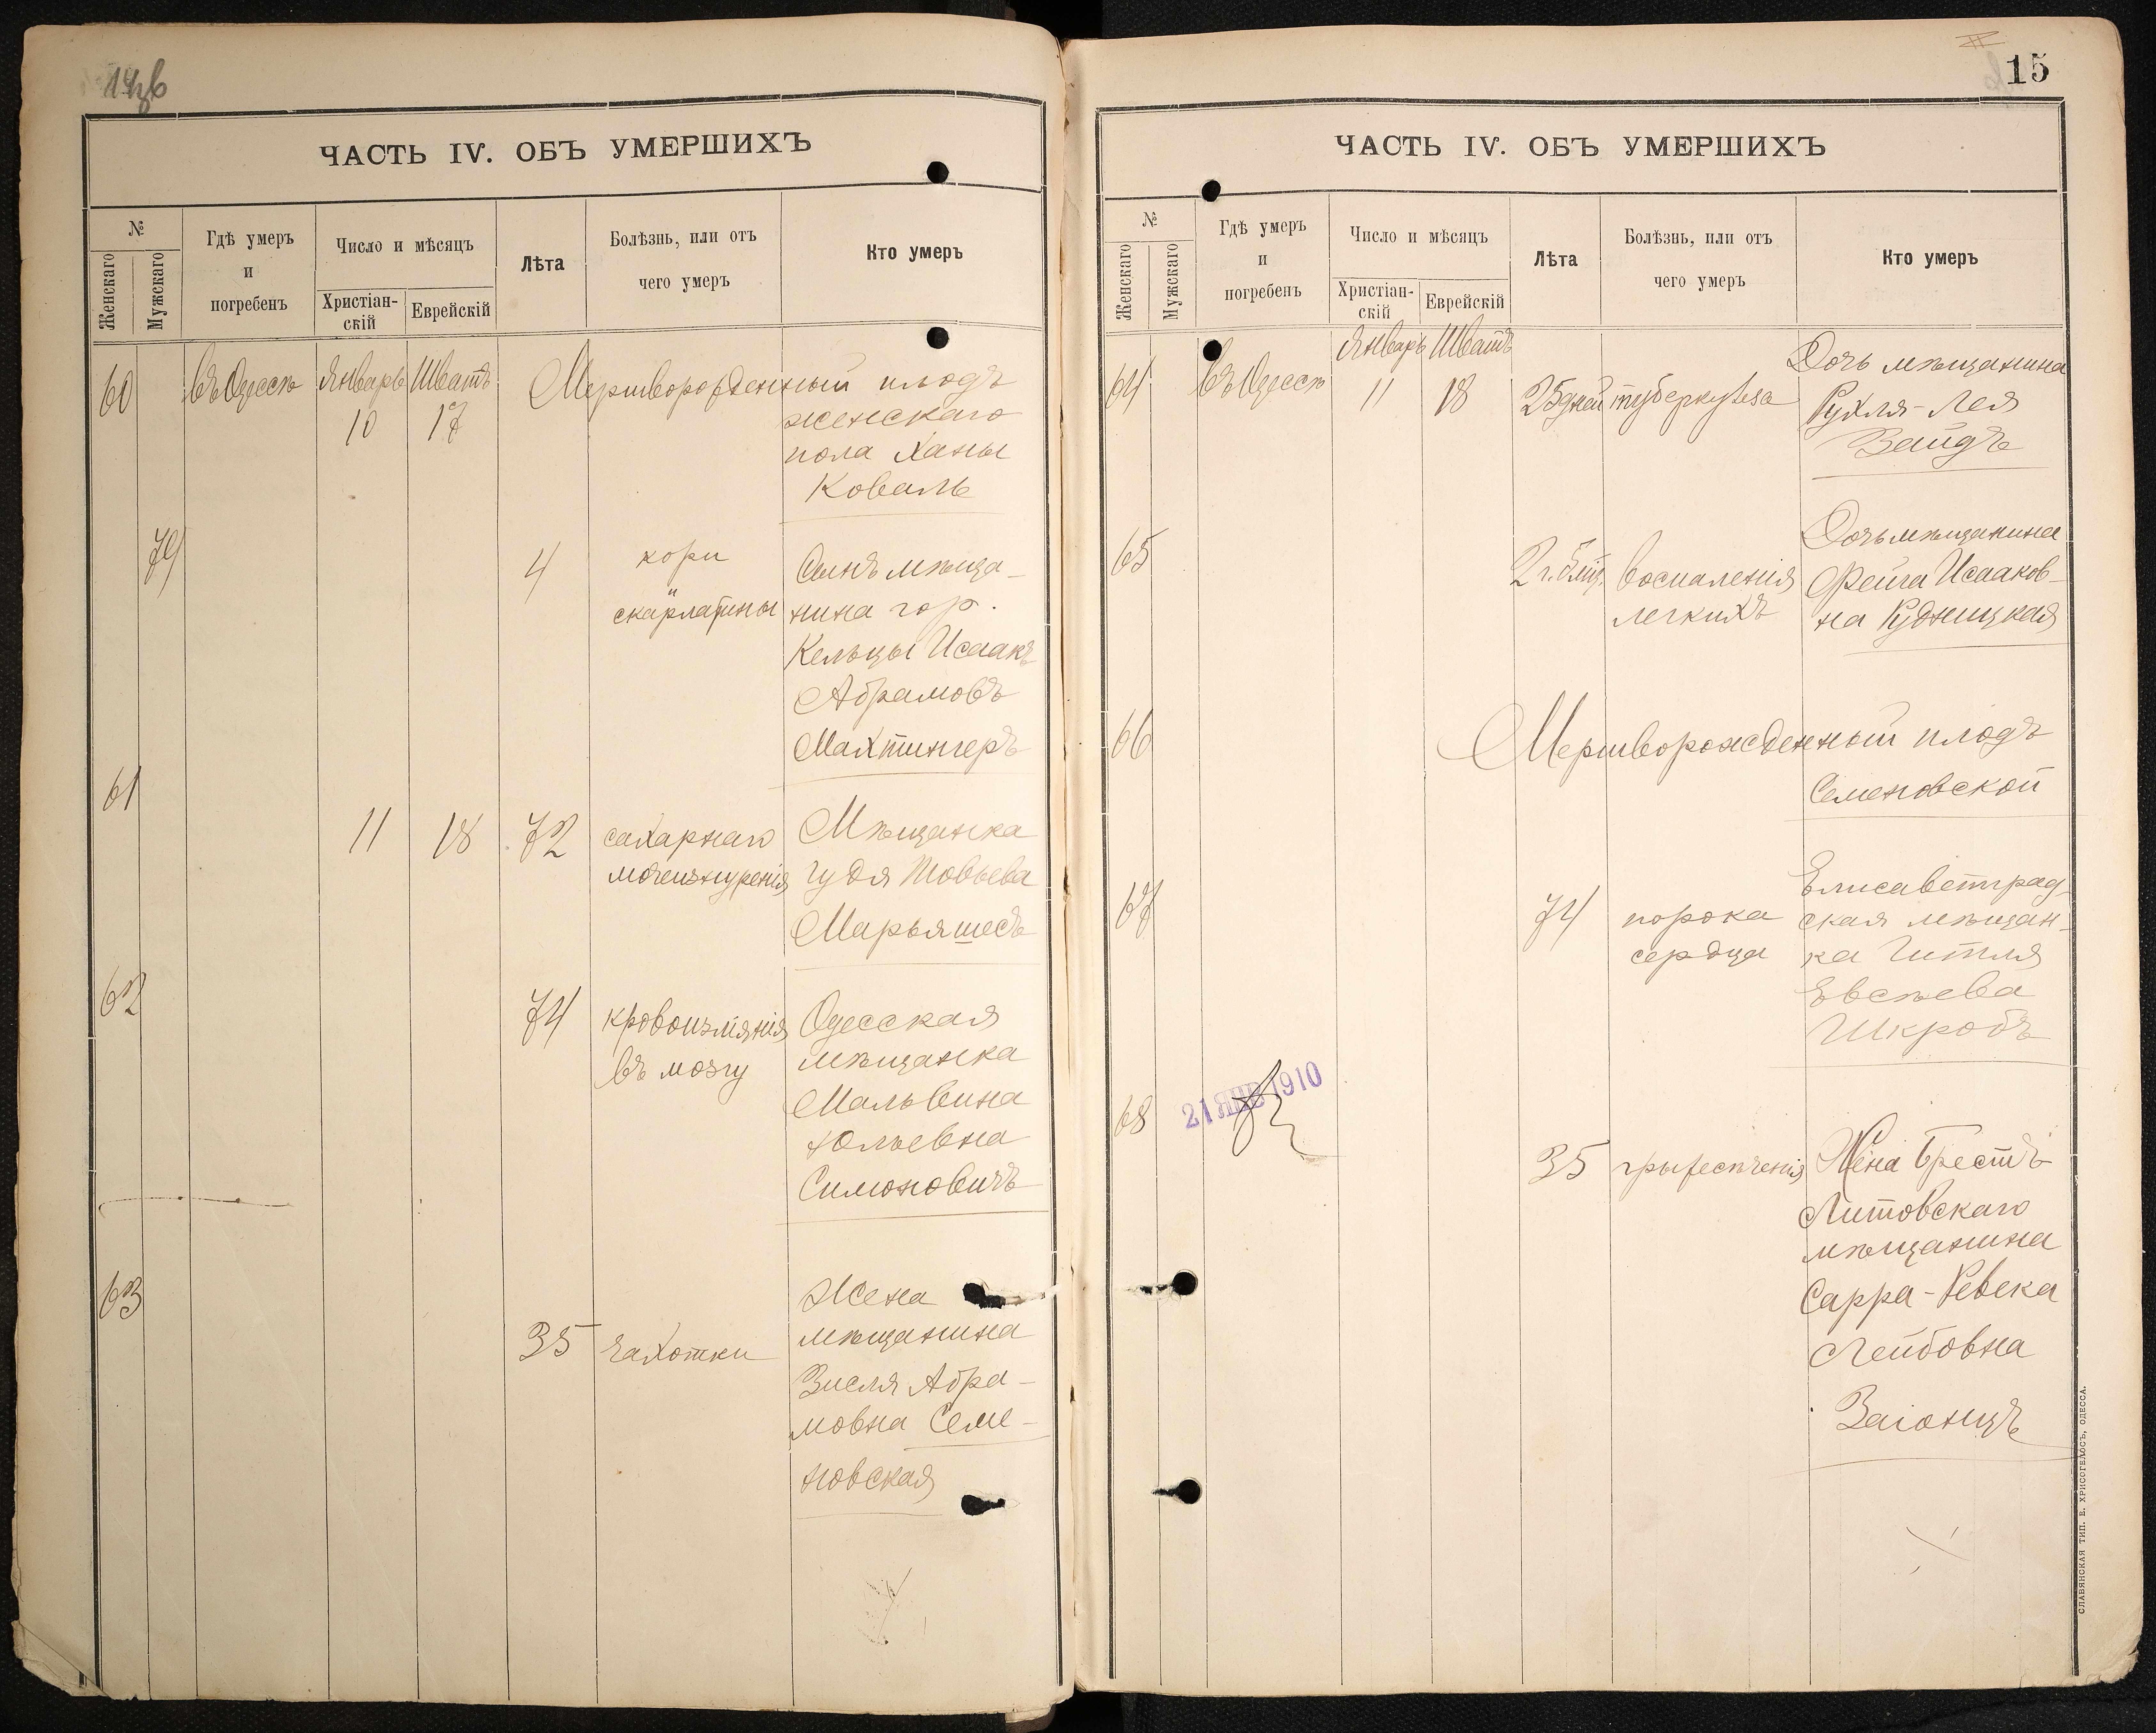 ЧАСТЬ IV. ОБЪ УМЕРШИХЪ
№
Женскаго
Мужскаго
Гдѣ умеръ
и
погребенъ
Число и мѣсяцъ
Христіан-
скій
Еврейскій
Лѣта
Болѣзнь, или отъ
чего умеръ
Кто умеръ
60 въ Одессѣ Январь Шватъ Мертворожденный плодъ
10 17 женскаго
пола Ханы
Коваль
79 4 кори Сынъ мѣща-
и
скарлатины нина гор.
Кельцы Исаакъ
Абрамовъ
Махтингеръ
61
11 18 72 сахарнаго Мѣщанка
мочеизнуренія Гудя Товьева
Марьяшесъ
62
74 кровоизліянія Одесская
въ мозгу мѣщанка
Мальвина
Юльевна
Симоновичъ
63
Жена
35 чахотки мѣщанина
Зисля Абра-
мовна Семе-
новская
15
ЧАСТЬ IV. ОБЪ УМЕРШИХЪ
№
Женскаго
Мужскаго
Гдѣ умеръ
и
погребенъ
Число и мѣсяцъ
Христіан-
скій
Еврейскій
Лѣта
Болѣзнь, или отъ
чего умеръ
Кто умеръ
Январь Шватъ Дочь мѣщанина
64 въ Одессѣ 11 18 25 дней туберкулеза Рухля-Лея
Вайдъ
65 Дочь мѣщанина
2 г. 5 мѣс. воспаленія Фейга Исааков-
легкихъ на Рудницкая
66 Мертворожденный плодъ
Семеновской
67 Елисаветград-
74 порока ская мѣщан-
сердца ка Гитля
Евсѣева
Шкробъ
68 21 ЯНВ 1910
35 грыжесѣченія Жена Брестъ
Литовскаго
мѣщанина
Сарра-Ревека
Лейбовна
Заіонцъ
СЛАВЯНСКАЯ ТИП. Е. ХРИСОГЕЛОСЪ, ОДЕССА.